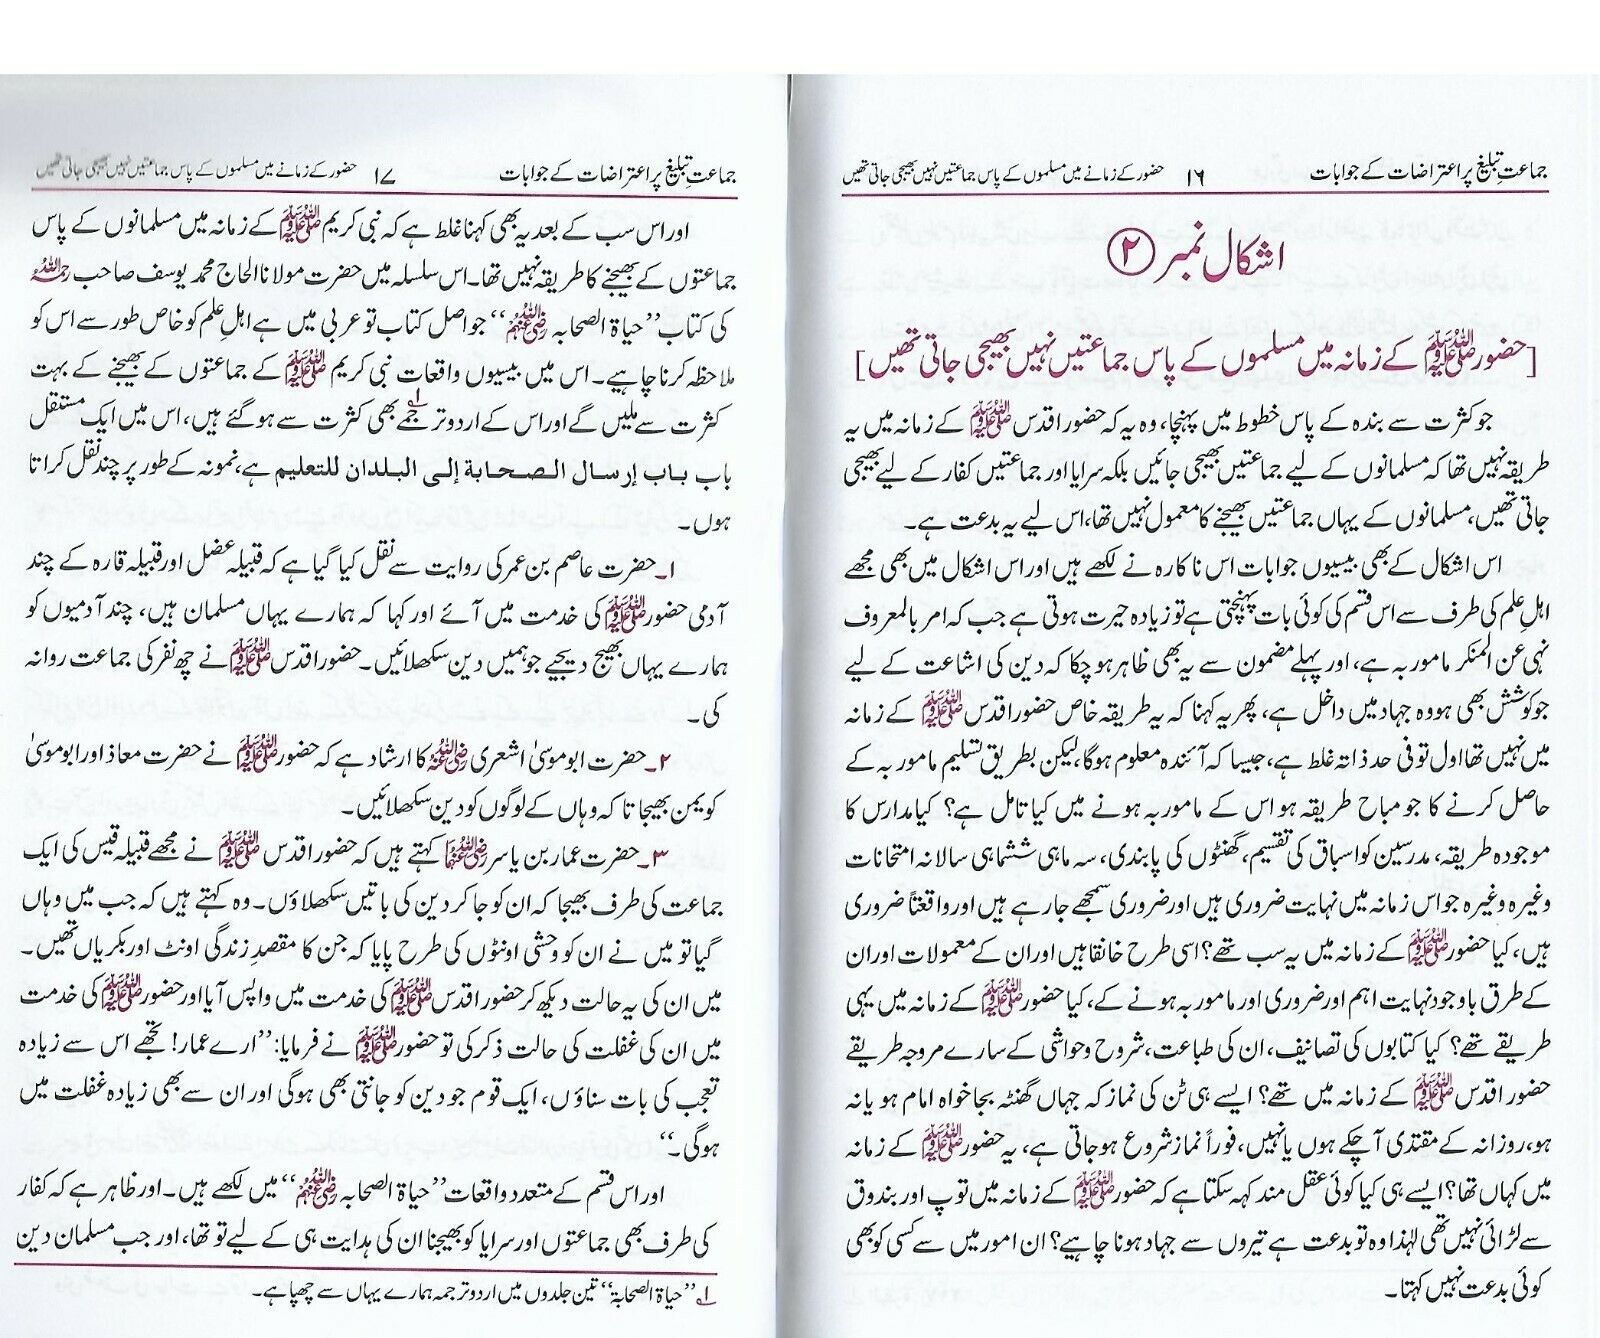 جماعتِ تبلیغ پر اعتراضات کے جوابات ۱۶ حضور کے زمانے میں مسلموں کے پاس جماعتیں نہیں بھیجی جاتی تھیں
اشکال نمبر ②
[حضور ﷺ کے زمانہ میں مسلموں کے پاس جماعتیں نہیں بھیجی جاتی تھیں]
جو کثرت سے بندہ کے پاس خطوط میں پہنچا، وہ یہ کہ حضور اقدس ﷺ کے زمانہ میں یہ
طریقہ نہیں تھا کہ مسلمانوں کے لیے جماعتیں بھیجی جائیں بلکہ سرایا اور جماعتیں کفار کے لیے بھیجی
جاتی تھیں، مسلمانوں کے یہاں جماعتیں بھیجنے کا معمول نہیں تھا، اس لیے یہ بدعت ہے۔
اس اشکال کے بھی بیسیوں جوابات اس ناکارہ نے لکھے ہیں اور اس اشکال میں بھی مجھے
اہلِ علم کی طرف سے اس قسم کی کوئی بات پہنچتی ہے تو زیادہ حیرت ہوتی ہے جب کہ امر بالمعروف
نہی عن المنکر مامور بہ ہے، اور پہلے مضمون سے یہ بھی ظاہر ہو چکا کہ دین کی اشاعت کے لیے
جو کوشش بھی ہو وہ جہاد میں داخل ہے، پھر یہ کہنا کہ یہ طریقہ خاص حضور اقدس ﷺ کے زمانہ
میں نہیں تھا اول تو فی حد ذاتہ غلط ہے، جیسا کہ آئندہ معلوم ہوگا، لیکن بطریق تسلیم مامور بہ کے
حاصل کرنے کا جو مباح طریقہ ہو اس کے مامور بہ ہونے میں کیا تامل ہے؟ کیا مدارس کا
موجودہ طریقہ، مدرسین کو اسباق کی تقسیم، گھنٹوں کی پابندی، سہ ماہی ششماہی سالانہ امتحانات
وغیرہ وغیرہ جو اس زمانہ میں نہایت ضروری ہیں اور ضروری سمجھے جا رہے ہیں اور واقعتاً ضروری
ہیں، کیا حضور ﷺ کے زمانہ میں یہ سب تھے؟ اسی طرح خانقاہیں اور ان کے معمولات اور ان
کے طرق باوجود نہایت اہم اور ضروری اور مامور بہ ہونے کے، کیا حضور ﷺ کے زمانہ میں یہی
طریقے تھے؟ کیا کتابوں کی تصانیف، ان کی طباعت، شروح وحواشی کے سارے مروجہ طریقے
حضور اقدس ﷺ کے زمانہ میں تھے؟ ایسے ہی ٹن کی نماز کہ جہاں گھنٹہ بجا خواہ امام ہو یا نہ
ہو، روزانہ کے مقتدی آ چکے ہوں یا نہیں، فوراً نماز شروع ہو جاتی ہے، یہ حضور ﷺ کے زمانہ
میں کہاں تھا؟ ایسے ہی کیا کوئی عقل مند کہہ سکتا ہے کہ حضور ﷺ کے زمانہ میں توپ اور بندوق
سے لڑائی نہیں تھی لہٰذا وہ تو بدعت ہے تیروں سے جہاد ہونا چاہیے؟ ان امور میں سے کسی کو بھی
کوئی بدعت نہیں کہتا۔
جماعتِ تبلیغ پر اعتراضات کے جوابات ۱۷ حضور کے زمانے میں مسلموں کے پاس جماعتیں نہیں بھیجی جاتی تھیں
اور اس سب کے بعد یہ بھی کہنا غلط ہے کہ نبی کریم ﷺ کے زمانہ میں مسلمانوں کے پاس
جماعتوں کے بھیجنے کا طریقہ نہیں تھا۔ اس سلسلہ میں حضرت مولانا الحاج محمد یوسف صاحب رحمہ اللہ
کی کتاب ’’حیاۃ الصحابہ رضی اللہ عنہم‘‘ جو اصل کتاب تو عربی میں ہے اہلِ علم کو خاص طور سے اس کو
ملاحظہ کرنا چاہیے۔ اس میں بیسیوں واقعات نبی کریم ﷺ کے جماعتوں کے بھیجنے کے بہت
کثرت سے ملیں گے اور اس کے اردو ترجمے۱؎ بھی کثرت سے ہو گئے ہیں، اس میں ایک مستقل
باب باب إرسال الصحابة إلى البلدان للتعليم ہے، نمونہ کے طور پر چند نقل کراتا
ہوں۔
۱۔ حضرت عاصم بن عمر کی روایت سے نقل کیا گیا ہے کہ قبیلہ عضل اور قبیلہ قارہ کے چند
آدمی حضور ﷺ کی خدمت میں آئے اور کہا کہ ہمارے یہاں مسلمان ہیں، چند آدمیوں کو
ہمارے یہاں بھیج دیجیے جو ہمیں دین سکھلائیں۔ حضور اقدس ﷺ نے چھ نفر کی جماعت روانہ
کی۔
۲۔ حضرت ابو موسیٰ اشعری رضی اللہ عنہ کا ارشاد ہے کہ حضور ﷺ نے حضرت معاذ اور ابو موسیٰ
کو یمن بھیجا تا کہ وہاں کے لوگوں کو دین سکھلائیں۔
۳۔ حضرت عمار بن یاسر رضی اللہ عنہما کہتے ہیں کہ حضور اقدس ﷺ نے مجھے قبیلہ قیس کی ایک
جماعت کی طرف بھیجا کہ ان کو جا کر دین کی باتیں سکھلاؤں۔ وہ کہتے ہیں کہ جب میں وہاں
گیا تو میں نے ان کو وحشی اونٹوں کی طرح پایا کہ جن کا مقصدِ زندگی اونٹ اور بکریاں تھیں۔
میں ان کی یہ حالت دیکھ کر حضور اقدس ﷺ کی خدمت میں واپس آیا اور حضور ﷺ کی خدمت
میں ان کی غفلت کی حالت ذکر کی تو حضور ﷺ نے فرمایا: ’’ارے عمار! تجھے اس سے زیادہ
تعجب کی بات سناؤں، ایک قوم جو دین کو جانتی بھی ہوگی اور ان سے بھی زیادہ غفلت میں
ہوگی۔‘‘
اور اس قسم کے متعدد واقعات ’’حیاۃ الصحابہ رضی اللہ عنہم‘‘ میں لکھے ہیں۔ اور ظاہر ہے کہ کفار
کی طرف بھی جماعتوں اور سرایا کو بھیجنا ان کی ہدایت ہی کے لیے تو تھا، اور جب مسلمان دین
۱؎ ’’حیاۃ الصحابۃ‘‘ تین جلدوں میں اردو ترجمہ ہمارے یہاں سے چھپا ہے۔